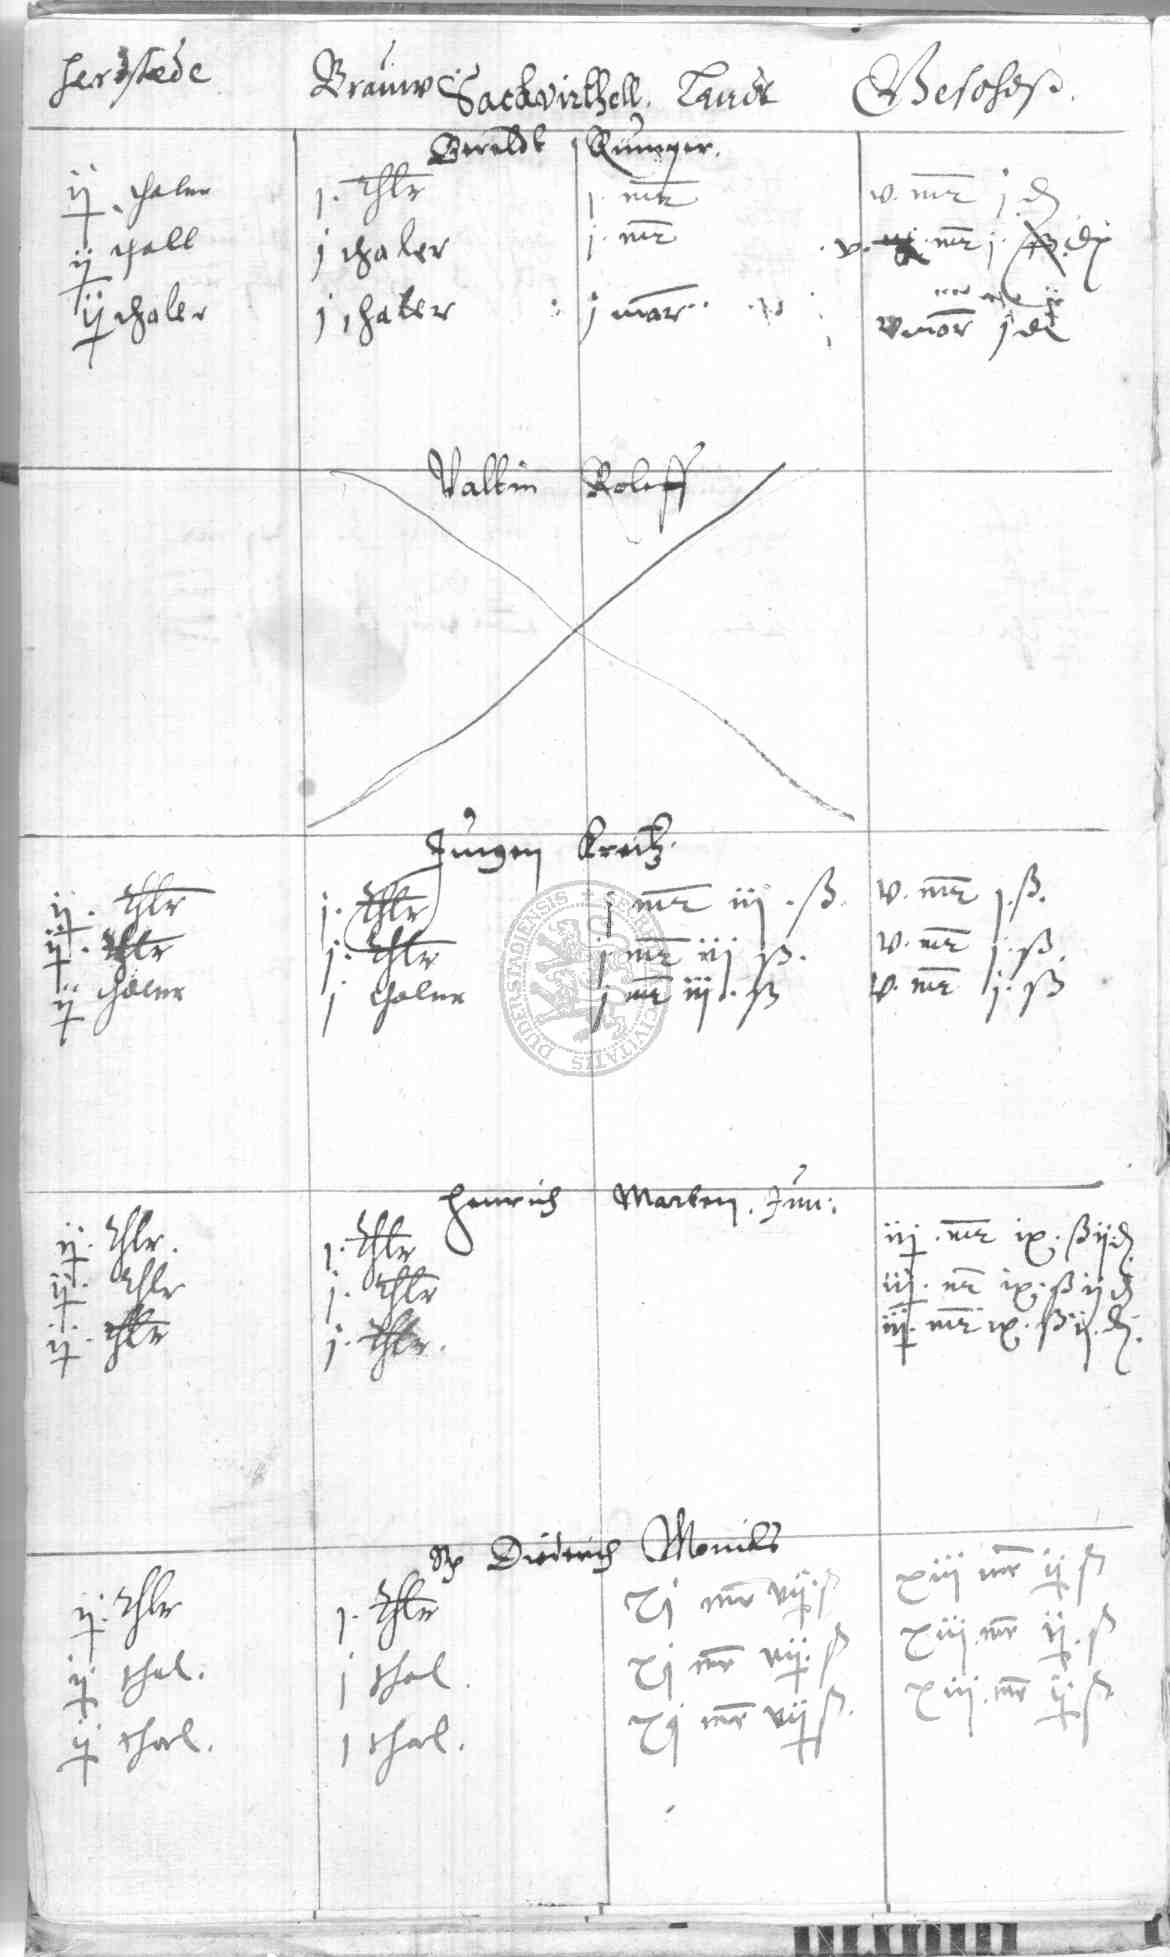 Herdstede Brauw Sackvirthell. Landt Geschoß.
Bereldt Rumper.
ij thaler j. thlr j. mr v. mr j d
ij thall j thaler j. mr v. mr j.
ij thaler j thaler j mar v mar j
Valtin Roleff
Jurgen Kreitz.
ij. thlr j. thlr j mr iij. ß. v. mr j. ß.
ij. thlr j. thlr j mr iij ß. v. mr j. ß.
ij thaler j thaler j mr iij. ß v. mr j. ß
Henrich Marten. Jun:
ij. thlr. j. thlr iij. mr ix. ß ij d.
ij. thlr j. thlr iij. mr ix. ß ij d
ij. thlr j. thlr. iij. mr ix. ß ij. d.
Diderich Monike
ij. thlr j. thlr xj mr vij. ß xiij mr ij ß
ij thal. j thal. xj mr vij. ß xiij mr ij. ß
ij thal. j thal. xj mr vij ß. xiij. mr ij ß.
DUDERSTADIENSIS CIVITATIS